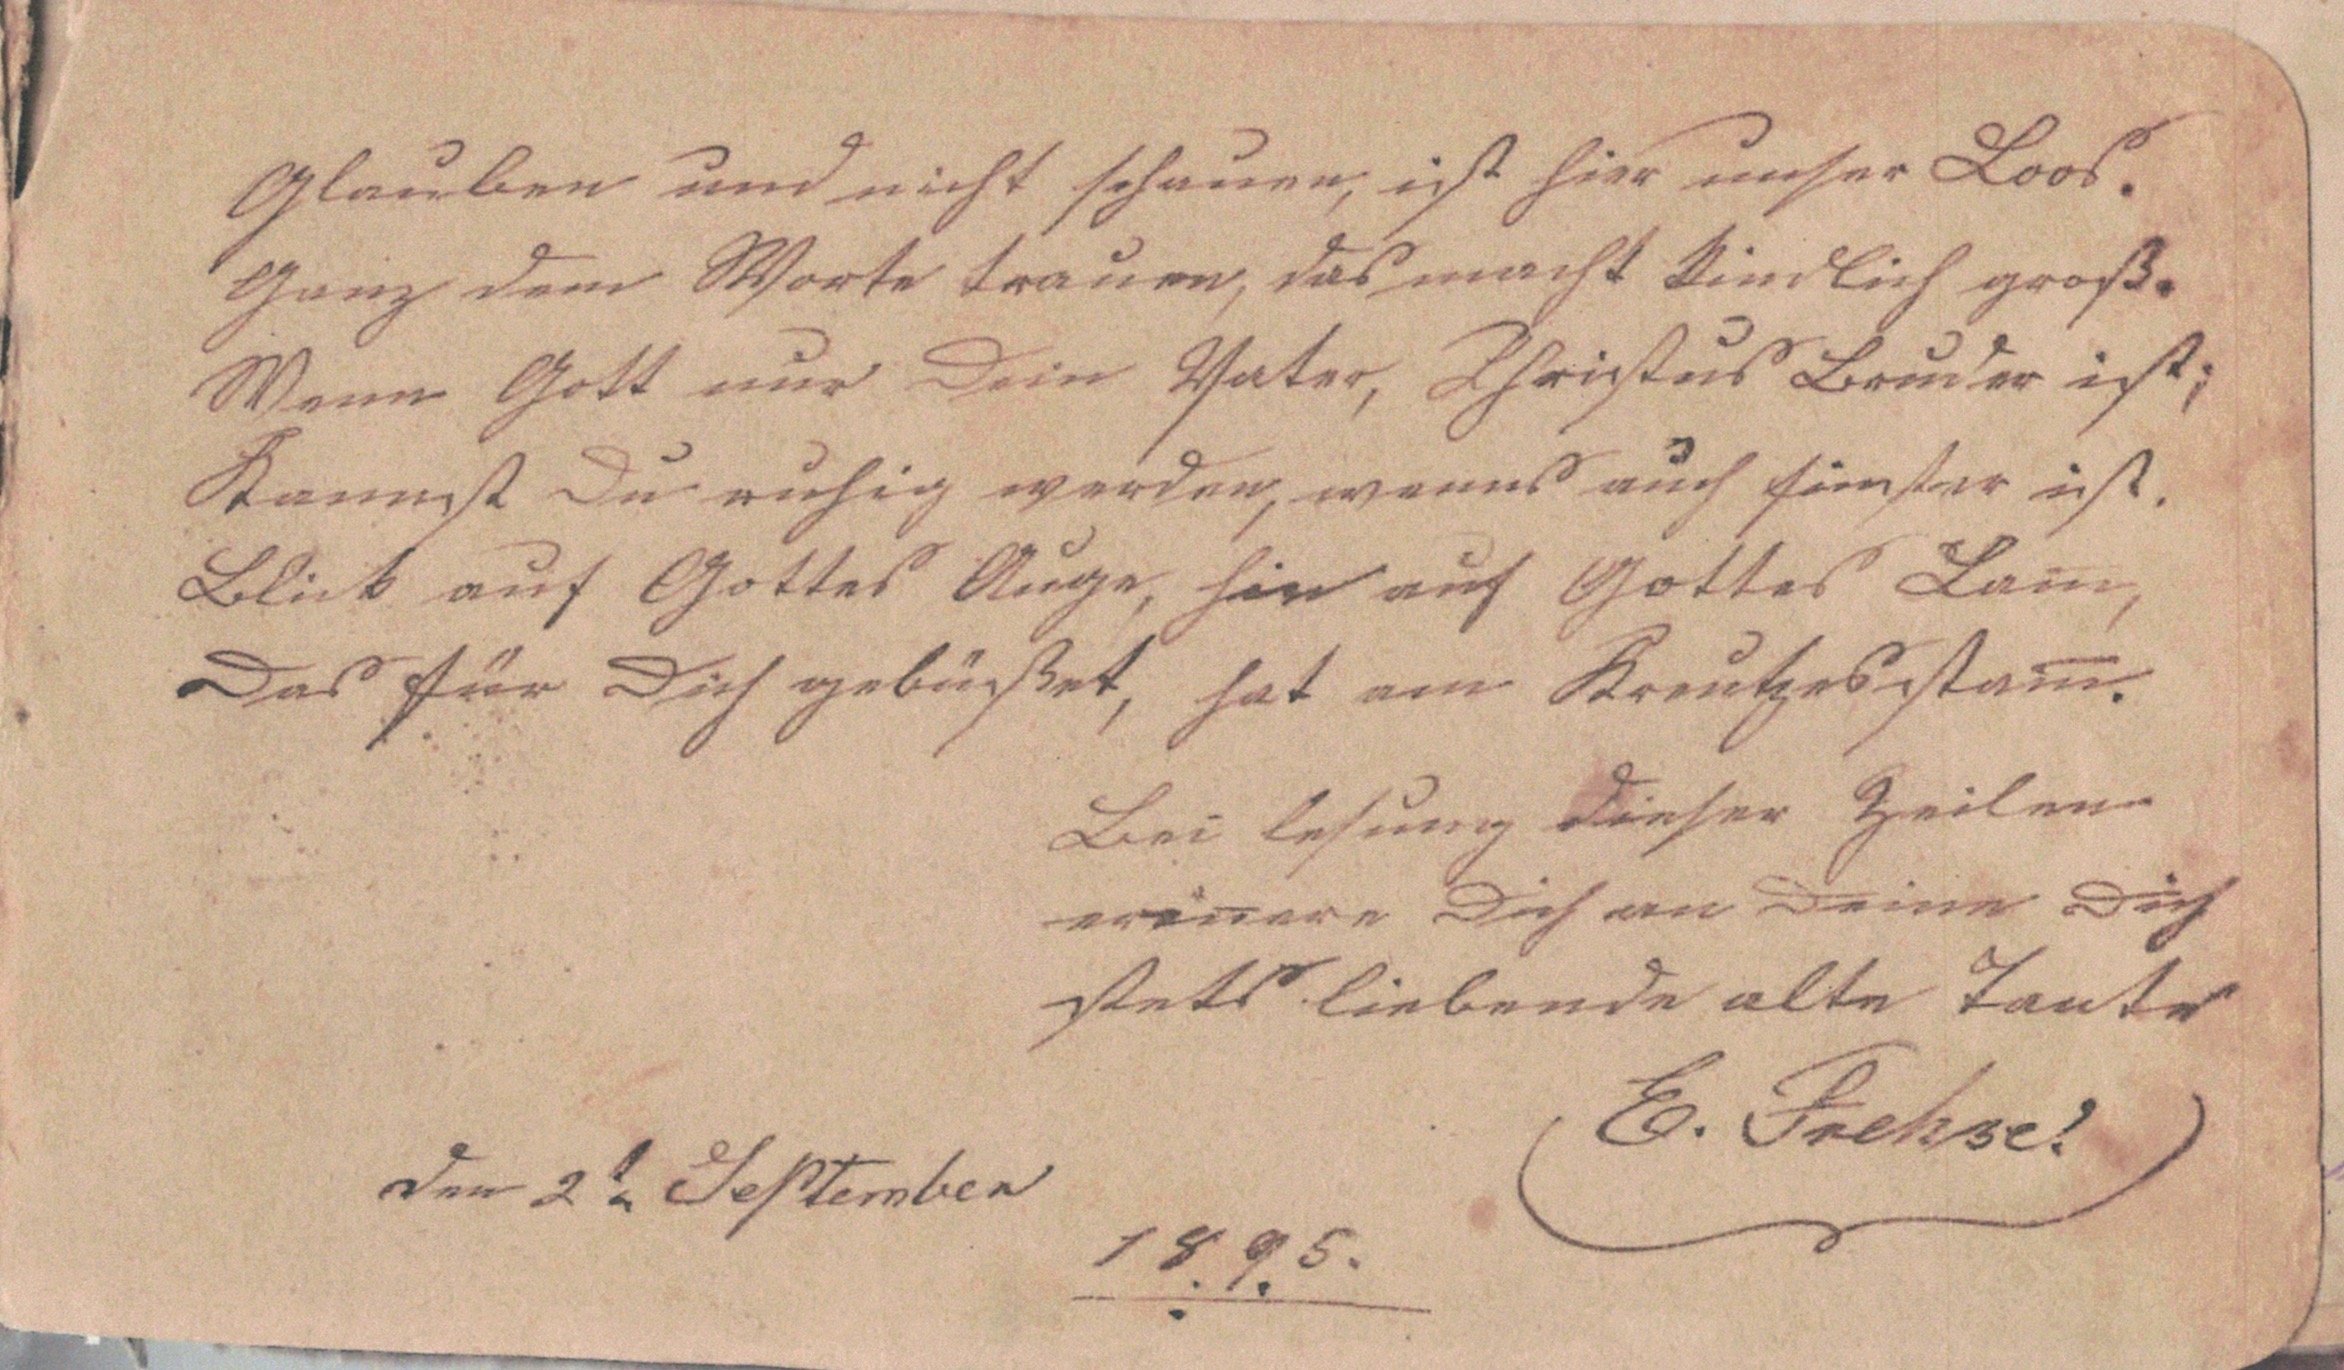 Glauben und nicht schauen, ist hier unser Loos.
Ganz dem Worte trauen, das macht kindlich groß.
Wenn Gott nur Dein Vater, Christus Bruder ist;
Kannst Du ruhig werden, wenns auch finster ist.
Blick auf Gottes Auge, hin auf Gottes Lam̅,
Das für Dich gebüßet, hat am Kreutzesstam̅.
Bei lesung dieser Zeilen
erin̅ere Dich an Deine Dich
stets liebende alte Tante
E. Frehse!
den 2t. September
1895.